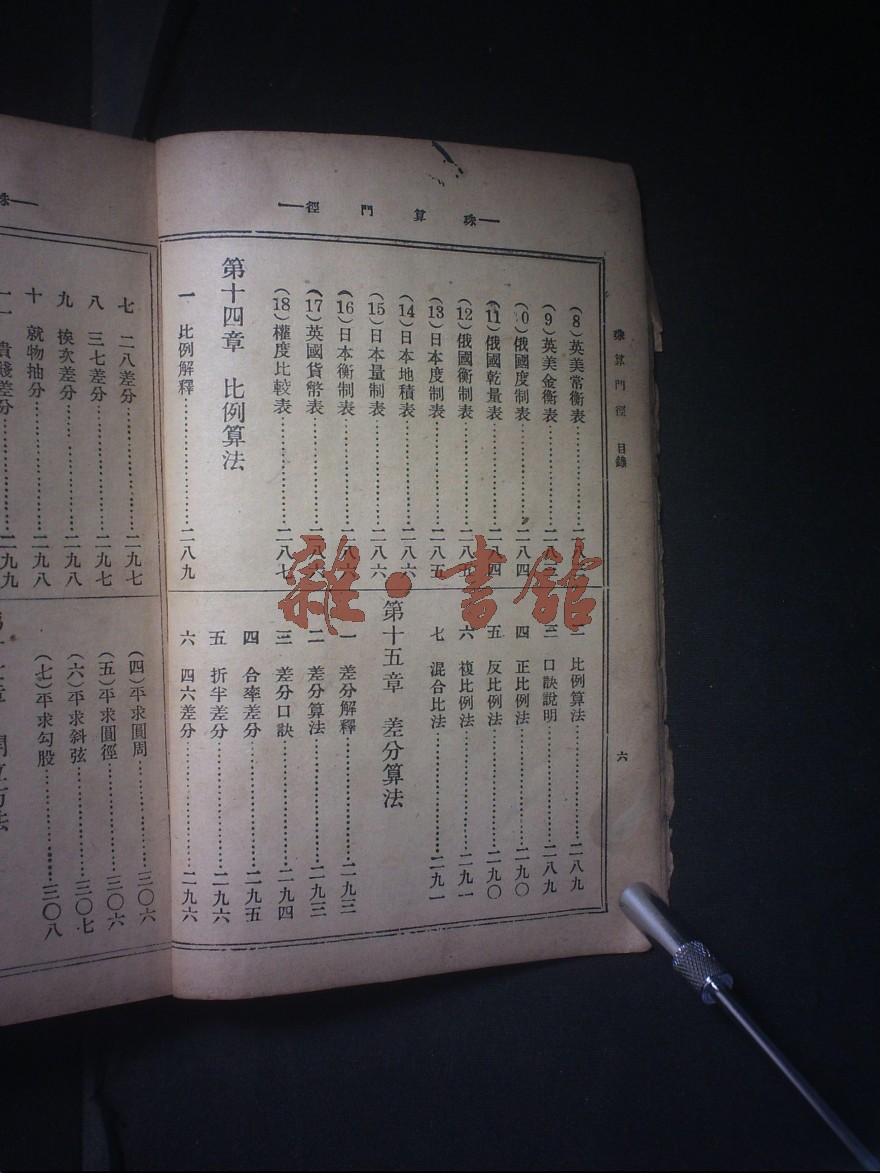 珠算門徑
珠算門徑 目錄
六
(8)英美常衡表
(9)英美金衡表
(10)俄國度制表 二八四
(11)俄國乾量表 二八四
(12)俄國衡制表
(13)日本度制表 二八五
(14)日本地積表 二八六
(15)日本量制表 二八六
(16)日本衡制表 二八六
(17)英國貨幣表
(18)權度比較表 二八七
第十四章 比例算法
一 比例解釋 二八九
二 比例算法 二八九
三 口訣說明 二八九
四 正比例法 二九〇
五 反比例法 二九〇
六 複比例法 二九一
七 混合比法 二九一
第十五章 差分算法
一 差分解釋 二九三
二 差分算法 二九三
三 差分口訣 二九四
四 合率差分 二九五
五 折半差分 二九六
六 四六差分 二九六
七 二八差分 二九七
八 三七差分 二九七
九 挨次差分 二九八
十 就物抽分 二九八
十一 貴賤差分 二九九
(四)平求圓周 三〇六
(五)平求圓徑 三〇六
(六)平求斜弦 三〇七
(七)平求勾股 三〇八
雜·書館